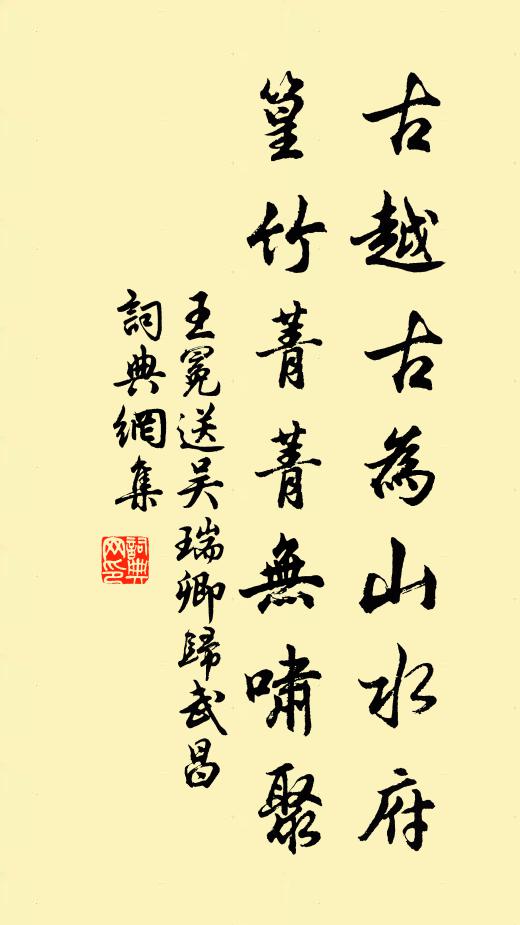 古越古為山水府
篁竹菁菁無嘯聚
王冕送吴瑞卿歸武昌
詞典網集
詞典网印